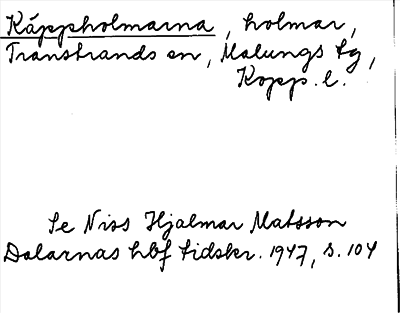 Käppholmarna, holmar,
Transtrands sn, Malungs tg,
Kopp. l.
Se Niss Hjalmar Matsson
Dalarnas hbf tidskr. 1947, s. 104